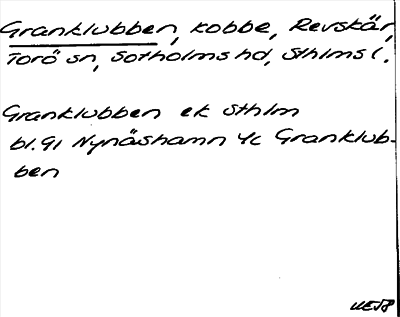 Granklubben, kobbe, Revskär,
Torö sn, Sotholms hd, Sthlms l.
Granklubben ek Sthlm
bl. 91 Nynäshamn 4c Granklub-
ben